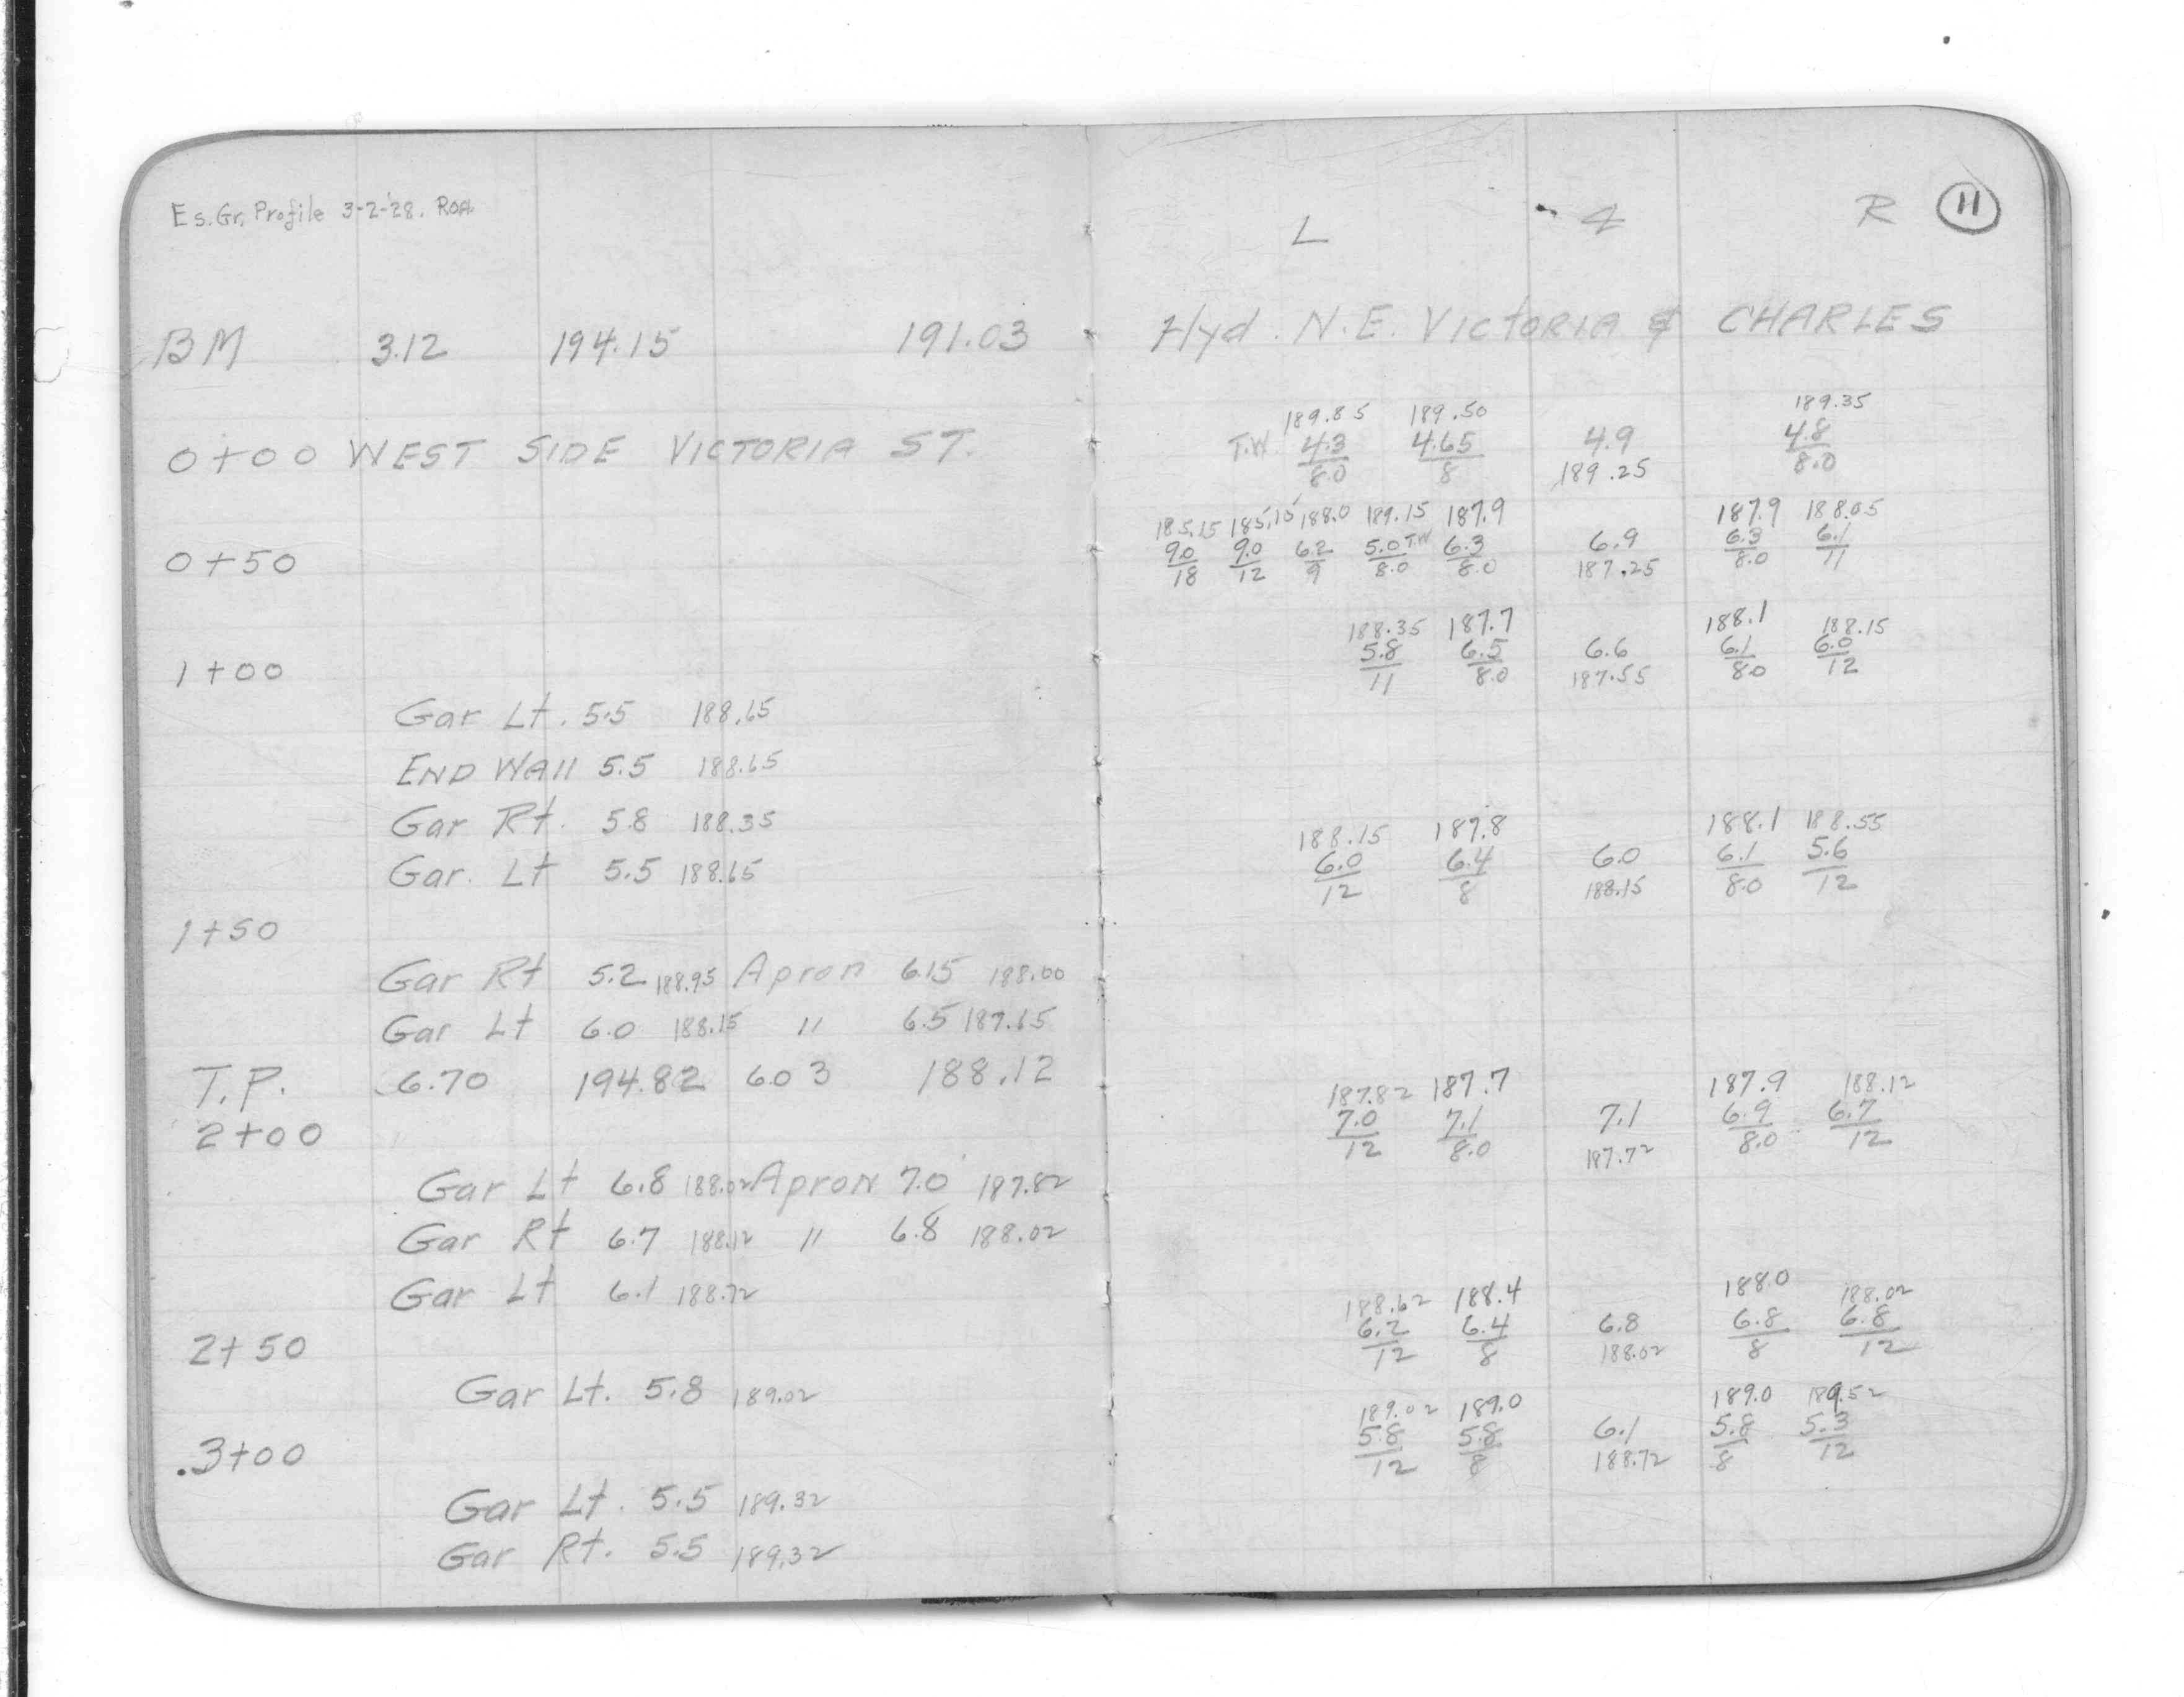 Es. Gr. Profile 3-2-'28. ROA.
BM 3.12 194.15 191.03
0+00 WEST SIDE VICTORIA ST.
0+50
1+00
Gar Lt. 5.5 188.65
END WAll 5.5 188.65
Gar Rt. 5.8 188.35
Gar. Lt 5.5 188.65
1+50
Gar Rt 5.2 188.95 Apron 6.15 188.00
Gar Lt 6.0 188.15 " 6.5 187.65
T.P. 6.70 194.82 6.03 188.12
2+00
Gar Lt 6.8 188.02 Apron 7.0 187.82
Gar Rt 6.7 188.12 " 6.8 188.02
Gar Lt 6.1 188.72
2+50
Gar Lt. 5.8 189.02
3+00
Gar Lt. 5.5 189.32
Gar Rt. 5.5 189.32
L ℄ R 11
Hyd. N.E. VICTORIA & CHARLES
189.85 189.50 189.35
T.W. 4.3 4.65 4.9 4.8
8.0 8 189.25 8.0
185.15 185.15 188.0 189.15 187.9 187.9 188.05
9.0 9.0 6.2 5.0 T.W 6.3 6.9 6.3 6.1
18 12 9 8.0 8.0 187.25 8.0 11
188.35 187.7 188.1 188.15
5.8 6.5 6.6 6.1 6.0
11 8.0 187.55 8.0 12
188.15 187.8 188.1 188.55
6.0 6.4 6.0 6.1 5.6
12 8 188.15 8.0 12
187.82 187.7 187.9 188.12
7.0 7.1 7.1 6.9 6.7
12 8.0 187.72 8.0 12
188.62 188.4 188.0 188.02
6.2 6.4 6.8 6.8 6.8
12 8 188.02 8 12
189.02 189.0 189.0 189.52
5.8 5.8 6.1 5.8 5.3
12 8 188.72 8 12